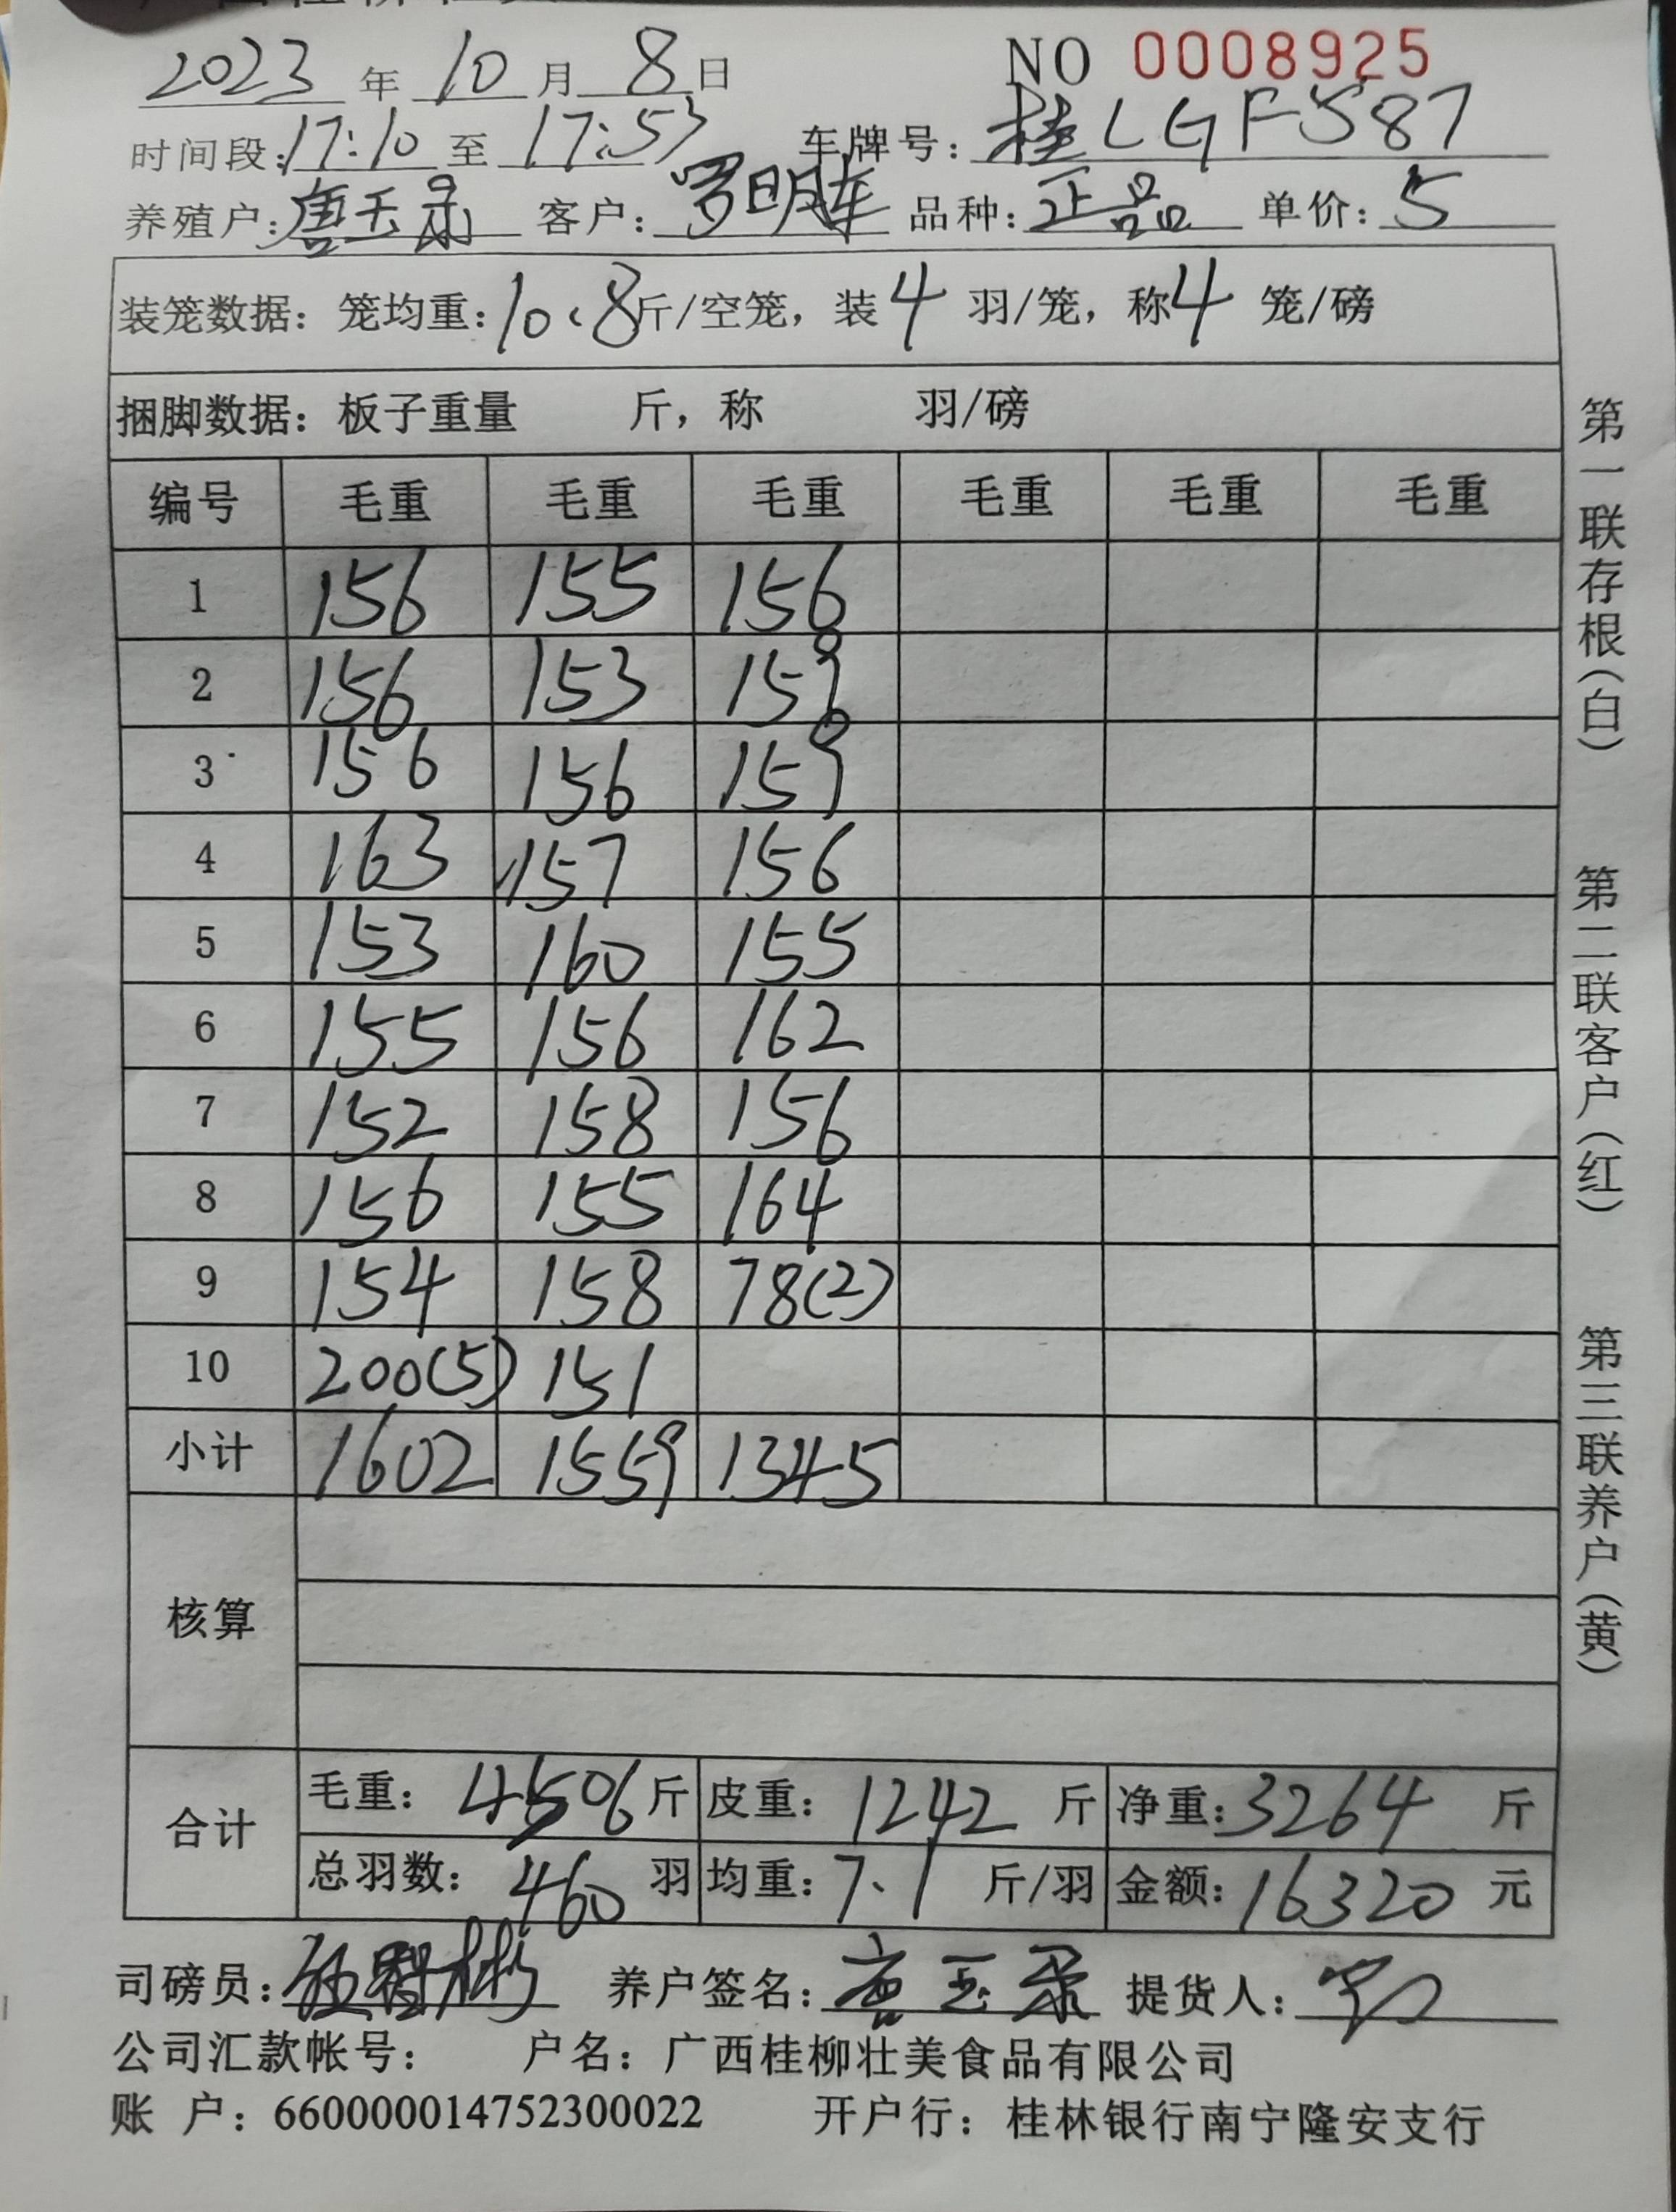 2023 年 10 月 8 日 NO 0008925
时间段:17:10 至 17:53 车牌号: 桂LGF587
养殖户: 唐玉录 客户: 罗明库 品种: 正品 单价: 5
装笼数据: 笼均重: 10.8 斤/空笼, 装 4 羽/笼, 称 4 笼/磅
捆脚数据: 板子重量 斤, 称 羽/磅
编号 毛重 毛重 毛重 毛重 毛重 毛重
1 156 155 156
2 156 153 159
3 156 156 159
4 163 157 156
5 153 160 155
6 155 156 162
7 152 158 156
8 156 155 164
9 154 158 78(2)
10 200(5) 151
小计 1602 1559 1345
核算
合计 毛重: 4506 斤 皮重: 1242 斤 净重: 3264 斤
总羽数: 460 羽 均重: 7.1 斤/羽 金额: 16320 元
司磅员: 养户签名: 唐玉录 提货人:
公司汇款帐号: 户名: 广西桂柳壮美食品有限公司
账 户: 660000014752300022 开户行: 桂林银行南宁隆安支行
第一联存根(白) 第二联客户(红) 第三联养户(黄)